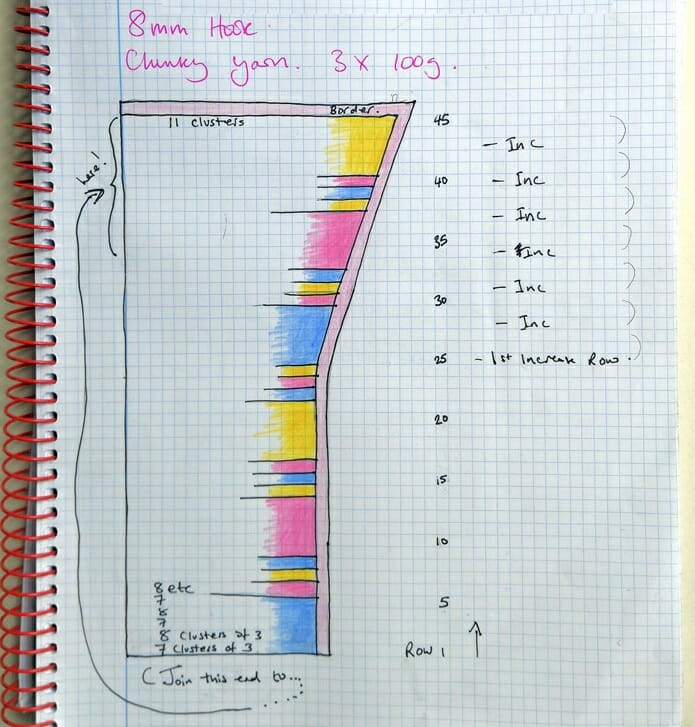 8mm Hook.
Chunky yarn. 3 x 100g.
Border.
11 clusters
here!
45
- Inc
40 - Inc
- Inc
35 - Inc
- Inc
30 - Inc
25 - 1st Increase Row.
20
15
10
5
Row 1
8 etc
7
8
7
8 Clusters of 3
7 Clusters of 3
(Join this end to...